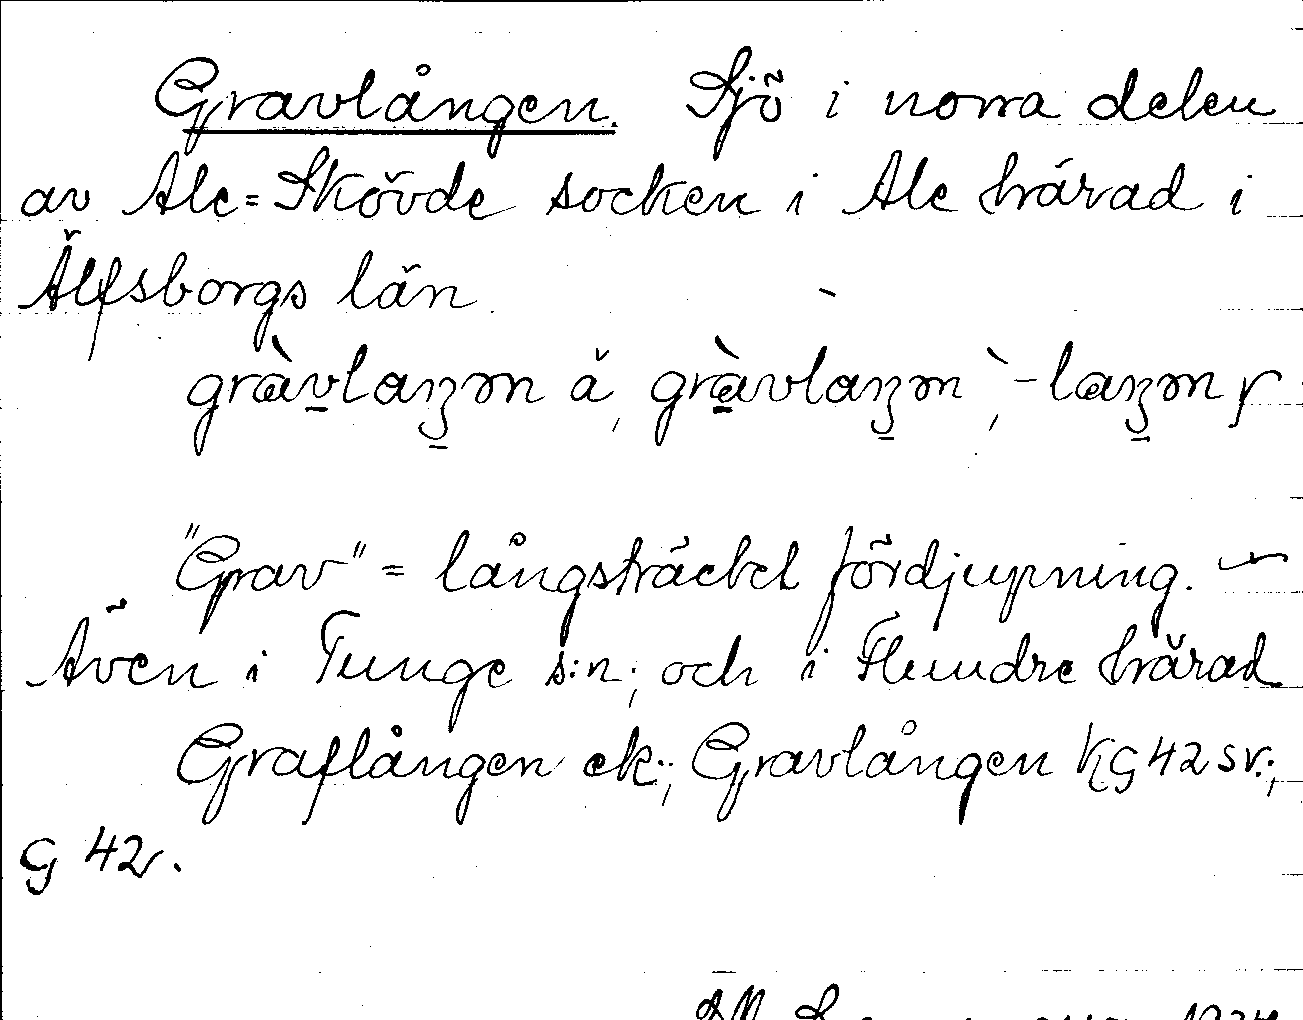 Gravlången. Sjö i norra delen
av Ale=Skövde socken i Ale härad i
Älfsborgs län
gràvlaŋən ä, gràvlaŋən, -laŋən
"Grav" = långsträckt fördjupning. –
Även i Tunge s:n; och i Flundre härad
Graflången ek.; Gravlången KG 42 sv.;
G 42.